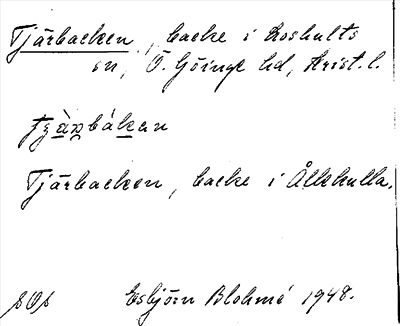 Tjärbacken, backe i Loshults
sn, Ö. Göinge hd, Krist. l.
Tjärbacken, backe i Ällekulla.
Esbjörn Blohmé 1948.